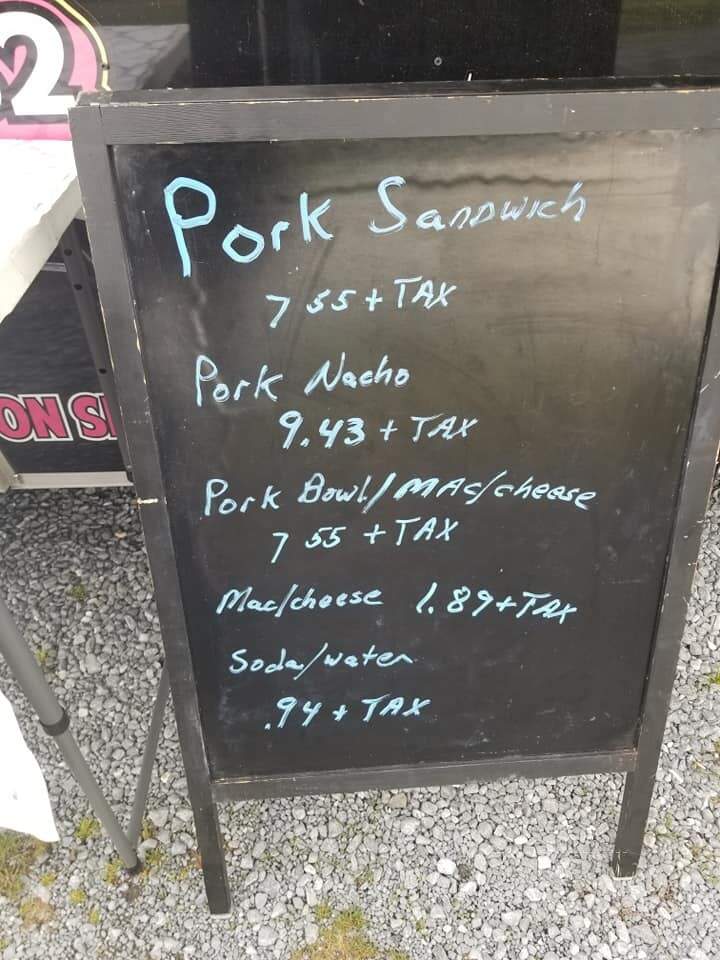 2
ON S
Pork Sandwich
7 55 + TAX
Pork Nacho
9.43 + TAX
Pork Bowl/MAC/cheese
7 55 + TAX
Mac/cheese 1.89 + TAX
Soda/water
.94 + TAX